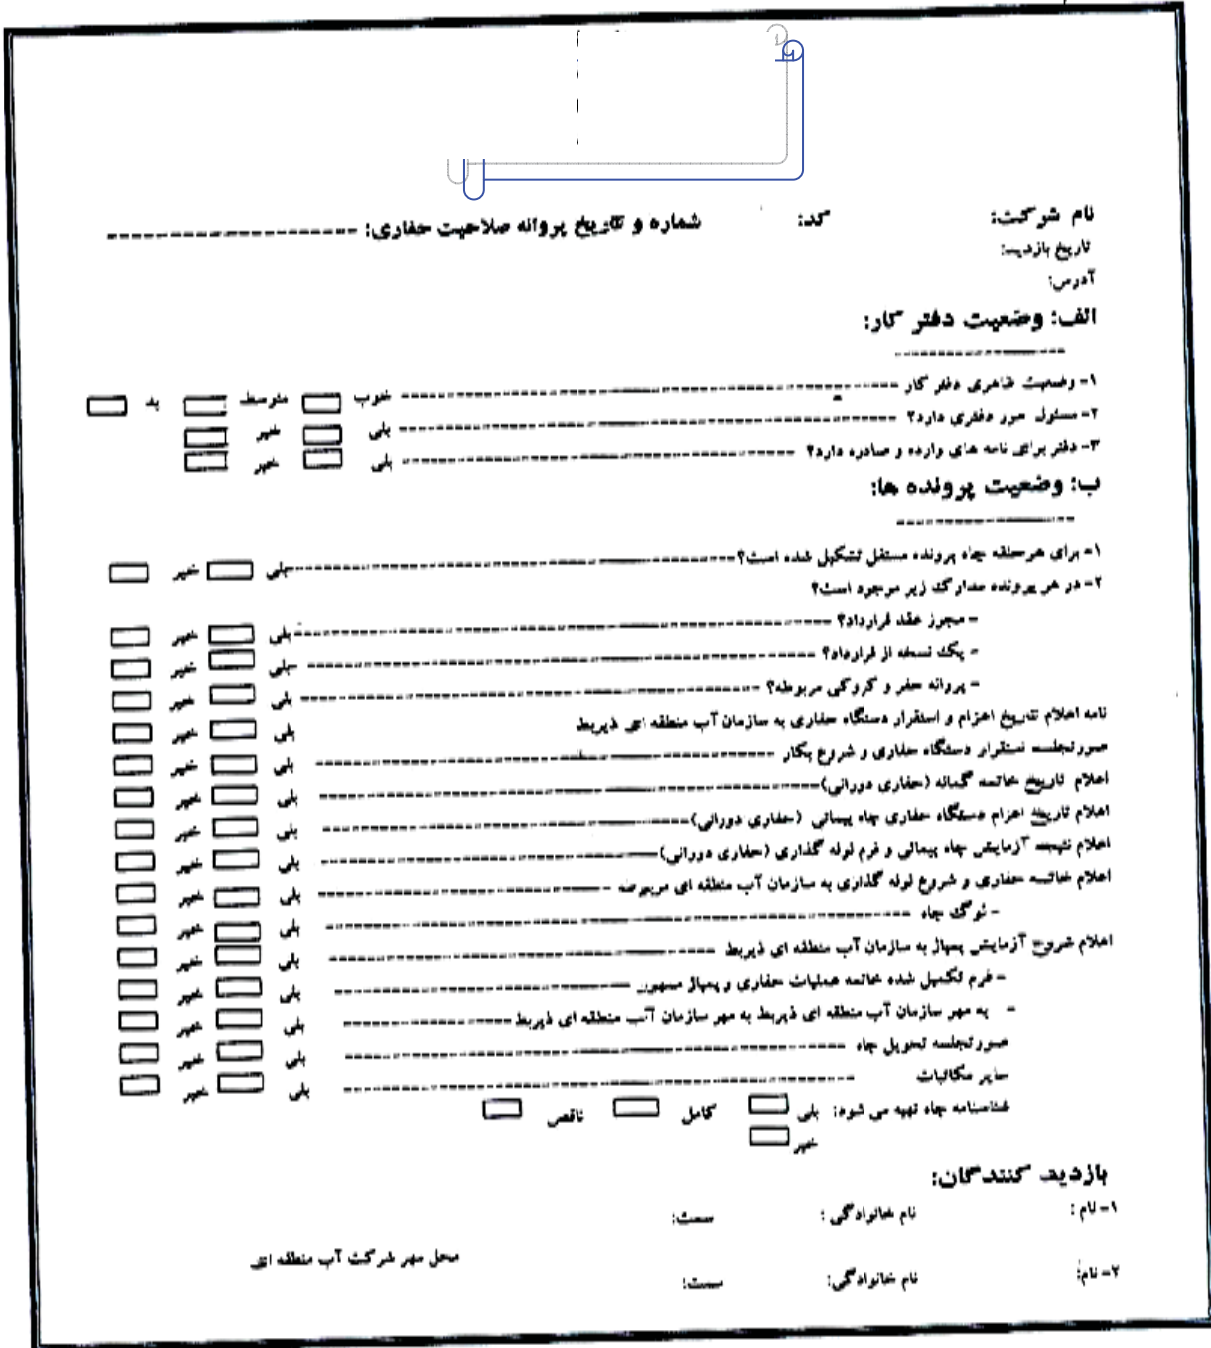 نام شرکت: کد: شماره و تاریخ پروانه صلاحیت حفاری: --------------------
تاریخ بازدید:
آدرس:
الف: وضعیت دفتر کار:
۱- وضعیت ظاهری دفتر کار -------------------- خوب متوسط بد
۲- مسئول امور دفتری دارد؟ -------------------- بلی خیر
۳- دفتر برای نامه های وارده و صادره دارد؟ -------------------- بلی خیر
ب: وضعیت پرونده ها:
۱- برای هر حلقه چاه پرونده مستقل تشکیل شده است؟ -------------------- بلی خیر
۲- در هر پرونده مدارک زیر موجود است؟
- مجوز عقد قرارداد؟ -------------------- بلی خیر
- یک نسخه از قرارداد؟ -------------------- بلی خیر
- پروانه حفر و کروکی مربوطه؟ -------------------- بلی خیر
نامه اعلام تاریخ اعزام و استقرار دستگاه حفاری به سازمان آب منطقه ای ذیربط بلی خیر
صورتجلسه استقرار دستگاه حفاری و شروع بکار -------------------- بلی خیر
اعلام تاریخ خاتمه گمانه (حفاری دورانی) -------------------- بلی خیر
اعلام تاریخ اعزام دستگاه حفاری چاه پیمائی (حفاری دورانی) -------------------- بلی خیر
اعلام نتیجه آزمایش چاه پیمائی و فرم لوله گذاری (حفاری دورانی) -------------------- بلی خیر
اعلام خاتمه حفاری و شروع لوله گذاری به سازمان آب منطقه ای مربوطه -------------------- بلی خیر
- لوگ چاه -------------------- بلی خیر
اعلام شروع آزمایش پمپاژ به سازمان آب منطقه ای ذیربط -------------------- بلی خیر
- فرم تکمیل شده خاتمه عملیات حفاری و پمپاژ ممهور -------------------- بلی خیر
- به مهر سازمان آب منطقه ای ذیربط به مهر سازمان آب منطقه ای ذیربط -------------------- بلی خیر
صورتجلسه تحویل چاه -------------------- بلی خیر
سایر مکاتبات -------------------- بلی خیر
شناسنامه چاه تهیه می شود: بلی کامل ناقص
خیر
بازدید کنندگان:
۱- نام: نام خانوادگی: سمت:
محل مهر شرکت آب منطقه ای
۲- نام: نام خانوادگی: سمت: